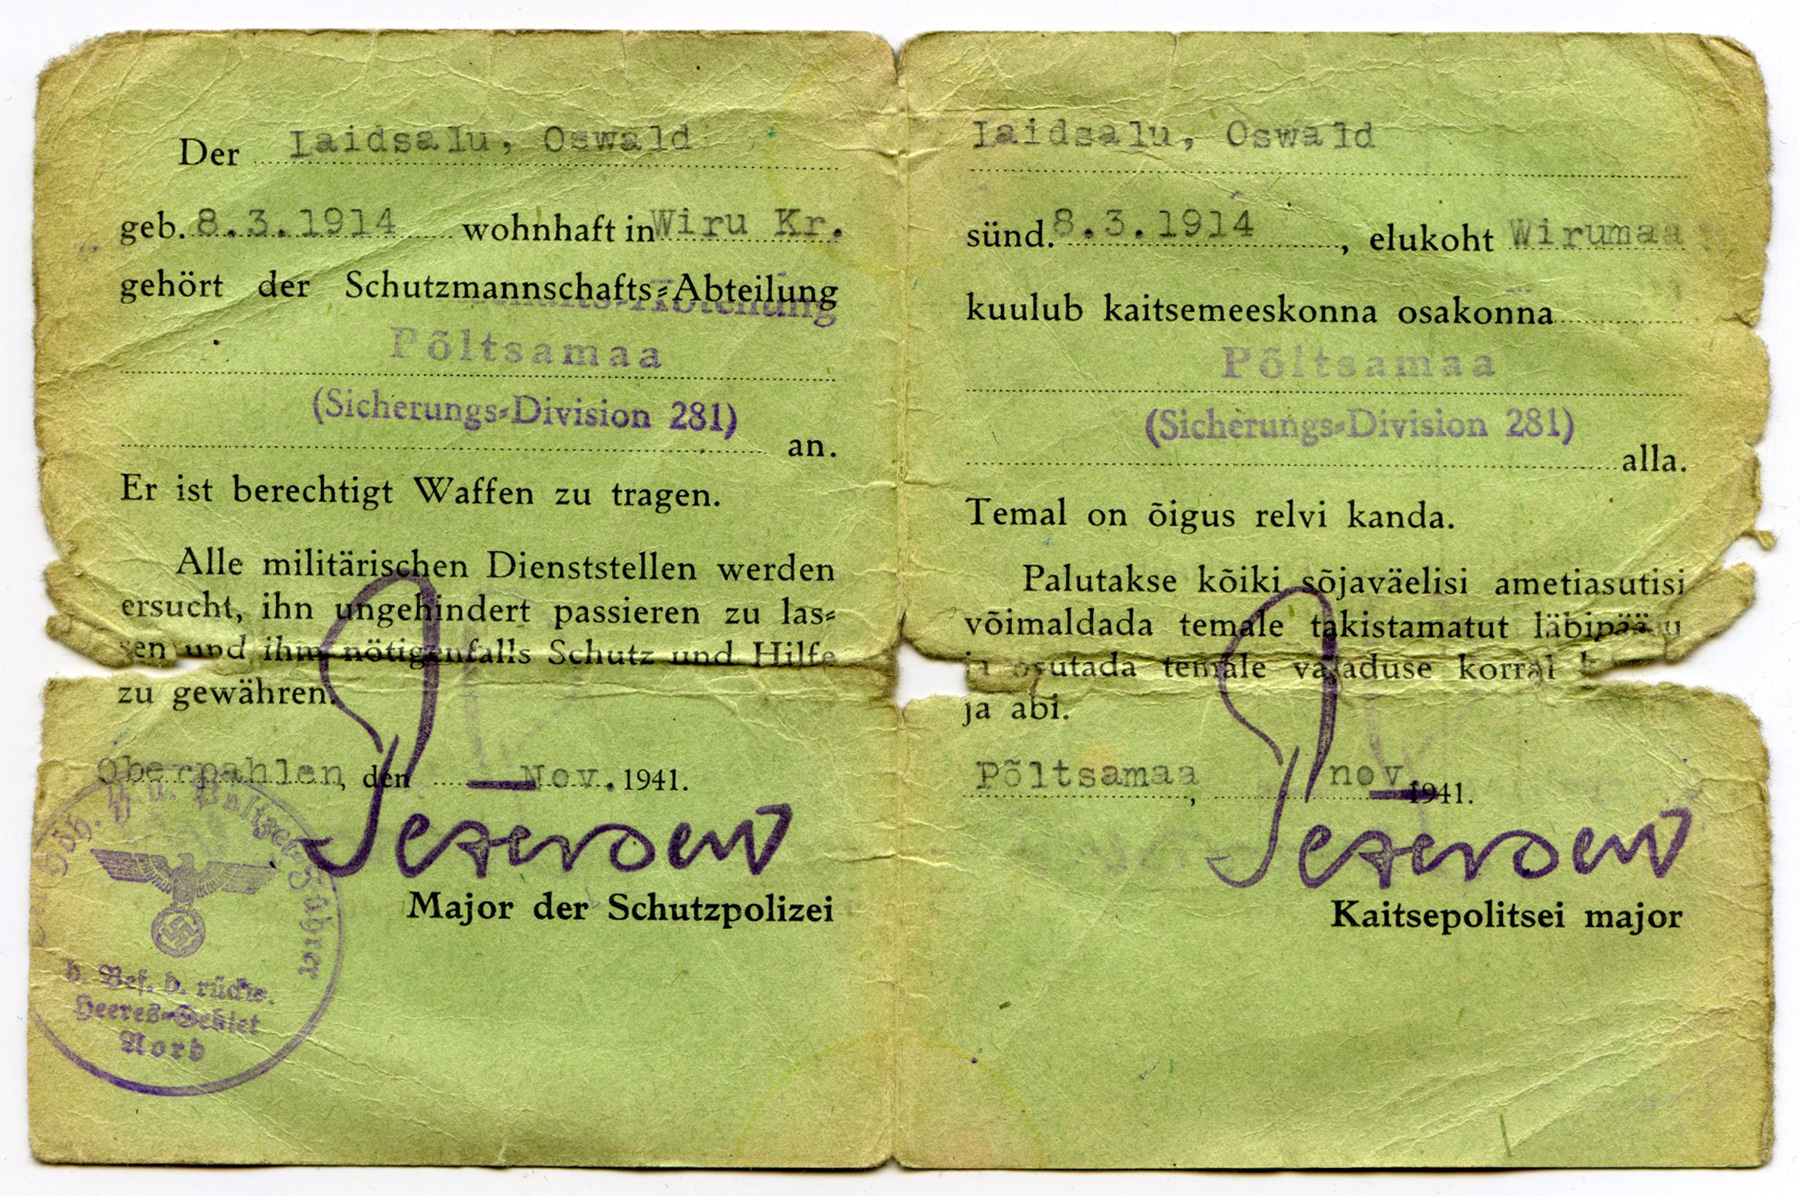 Der Laidsalu, Oswald
geb. 8.3.1914 wohnhaft in Wiru Kr.
gehört der Schutzmannschafts-Abteilung
Põltsamaa
(Sicherungs-Division 281)
an.
Er ist berechtigt Waffen zu tragen.
Alle militärischen Dienststellen werden
ersucht, ihn ungehindert passieren zu las-
sen und ihm nötigenfalls Schutz und Hilfe
zu gewähren.
Oberpahlen, den Nov. 1941.
Petersen
Major der Schutzpolizei
b. Bef. d. rückw.
Heeres-Gebiet
Nord
Laidsalu, Oswald
sünd. 8.3.1914, elukoht Wirumaa
kuulub kaitsemeeskonna osakonna
Põltsamaa
(Sicherungs-Division 281)
alla.
Temal on õigus relvi kanda.
Palutakse kõiki sõjaväelisi ametiasutisi
võimaldada temale takistamatut
ja osutada temale vajaduse korral
ja abi.
Põltsamaa, nov. 1941.
Petersen
Kaitsepolitsei major